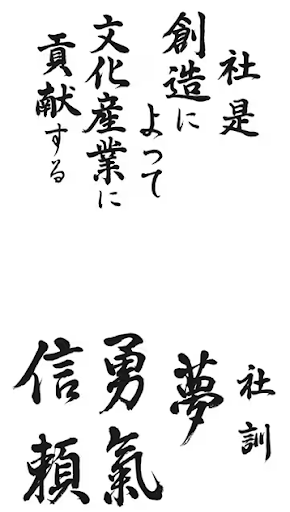 社是
創造に
よって
文化産業に
貢献する
社訓
夢
勇氣
信頼